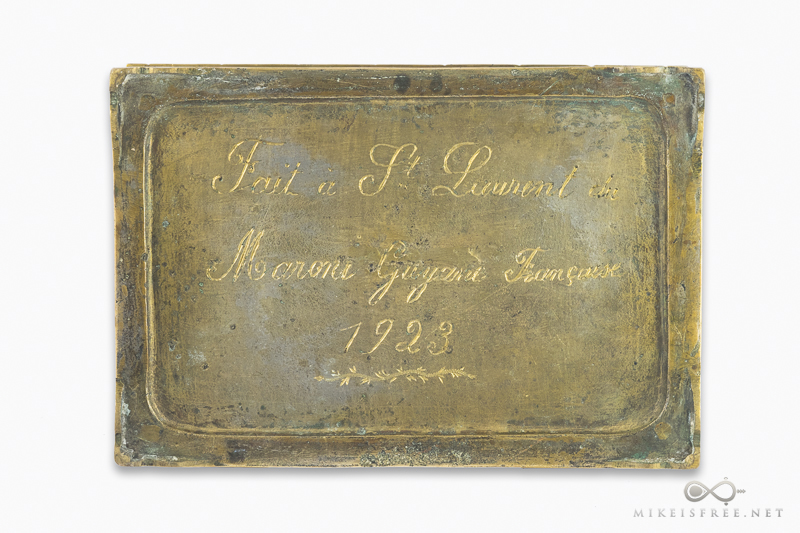 Fait à St Laurent du
Maroni Guyane Française
1923
MIKEISFREE.NET